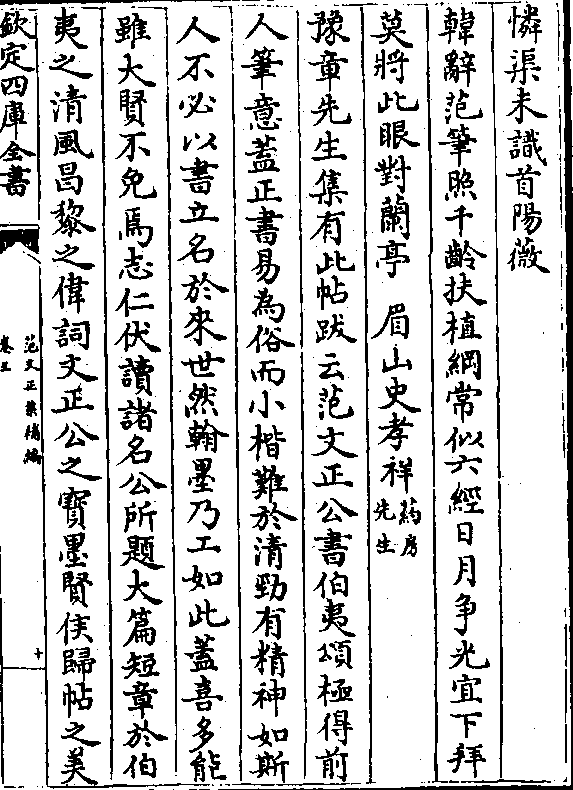 憐渠未識首陽薇
韓辭范筆照千齡扶植綱常似六經日月争光宜下拜
莫將此眼對蘭亭　眉山史孝祥药房先生
豫章先生集有此帖跋云范文正公書伯夷頌極得前
人筆意蓋正書易為俗而小楷難於清勁有精神如斯
人不必以書立名於來世然翰墨乃工如此蓋喜多能
雖大賢不免焉志仁伏讀諸名公所題大篇短章於伯
夷之清風昌黎之偉詞文正公之寶墨賢侯歸帖之美
欽定四庫全書
范文正集補編
卷五
十